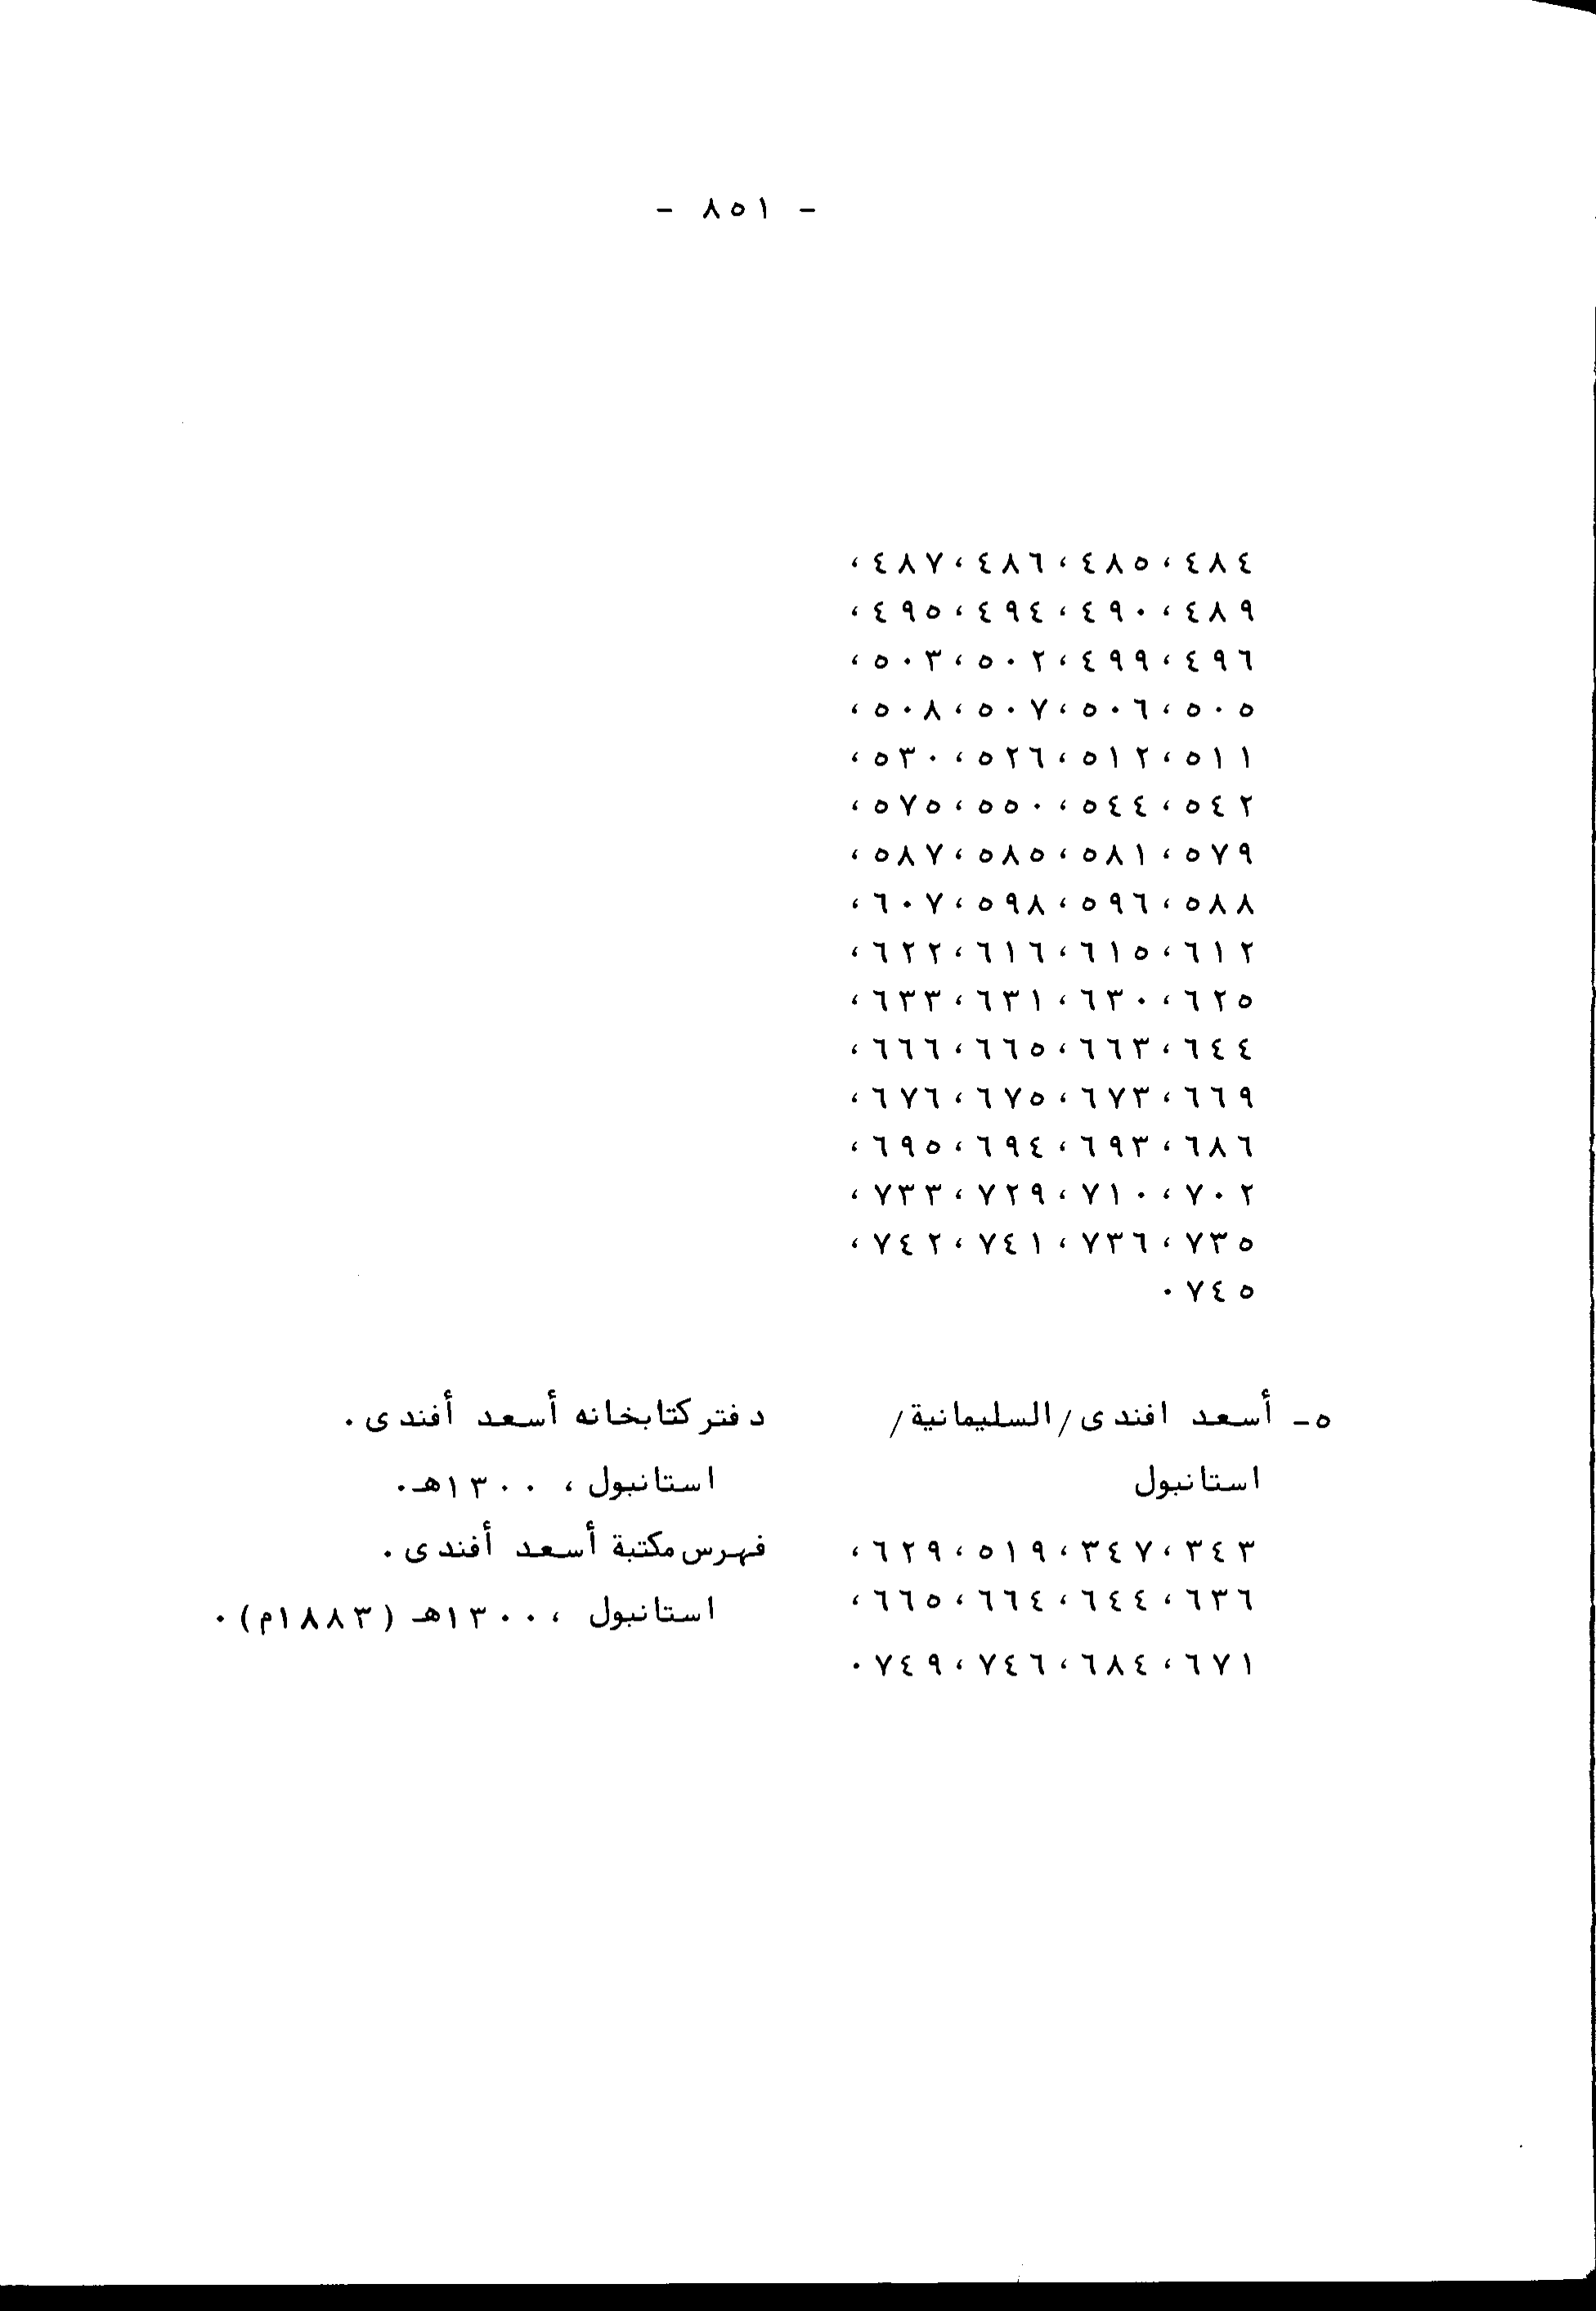 - ٨٥١ -
٤٨٤، ٤٨٥، ٤٨٦، ٤٨٧،
٤٨٩، ٤٩٠، ٤٩٤، ٤٩٥،
٤٩٦، ٤٩٩، ٥٠٢، ٥٠٣،
٥٠٥، ٥٠٦، ٥٠٧، ٥٠٨،
٥١١، ٥١٢، ٥٢٦، ٥٣٠،
٥٤٢، ٥٤٤، ٥٥٠، ٥٧٥،
٥٧٩، ٥٨١، ٥٨٥، ٥٨٧،
٥٨٨، ٥٩٦، ٥٩٨، ٦٠٧،
٦١٢، ٦١٥، ٦١٦، ٦٢٢،
٦٢٥، ٦٣٠، ٦٣١، ٦٣٣،
٦٤٤، ٦٦٣، ٦٦٥، ٦٦٦،
٦٦٩، ٦٧٣، ٦٧٥، ٦٧٦،
٦٨٦، ٦٩٣، ٦٩٤، ٦٩٥،
٧٠٢، ٧١٠، ٧٢٩، ٧٣٣،
٧٣٥، ٧٣٦، ٧٤١، ٧٤٢،
٧٤٥.
٥- أسعد افندى/السليمانية/
استانبول
٣٤٣، ٣٤٧، ٥١٩، ٦٢٩،
٦٣٦، ٦٤٤، ٦٦٤، ٦٦٥،
٦٧١، ٦٨٤، ٧٤٦، ٧٤٩.
دفتر كتابخانه أسعد أفندى.
استانبول، ١٣٠٠هـ.
فهرس مكتبة أسعد أفندى.
استانبول، ١٣٠٠هـ (١٨٨٣م).